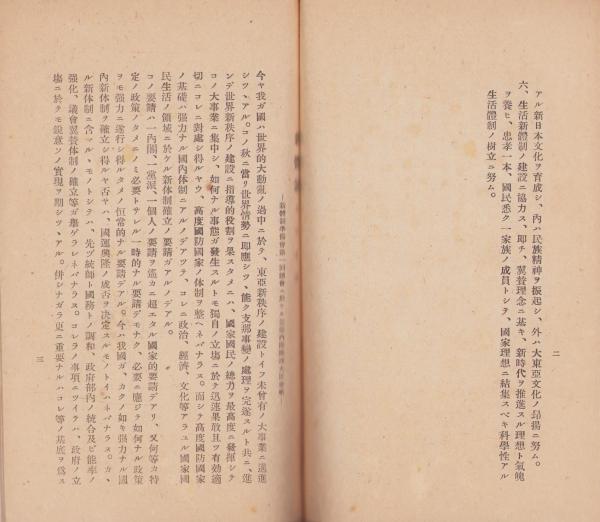 二
アル新日本文化ヲ育成シ、内ハ民族精神ヲ振起シ、外ハ大東亞文化ノ昂揚ニ努ム。
六、生活新體制ノ建設ニ協力ス、卽チ、翼贊理念ニ基キ、新時代ヲ推進スル理想ト氣魄
ヲ養ヒ、忠孝一本、國民悉ク一家族ノ成員トシテ、國家理想ニ結集スベキ科學性アル
生活體制ノ樹立ニ努ム。
今ヤ我ガ國ハ世界的大動亂ノ渦中ニ於テ、東亞新秩序ノ建設トイフ未曾有ノ大事業ニ邁進
シツヽアル。コノ秋ニ當リ世界情勢ニ卽應シツヽ、能ク支那事變ノ處理ヲ完遂スルト共ニ、進
ンデ世界新秩序ノ建設ニ指導的役割ヲ果スタメニハ、國家國民ノ總力ヲ最高度ニ發揮シテ
コノ大事業ニ集中シ、如何ナル事態ガ發生スルトモ獨自ノ立場ニ於テ迅速果敢且ツ有効適
切ニコレニ對處シ得ルヤウ、高度國防國家ノ体制ヲ整ヘネバナラヌ。而シテ高度國防國家
ノ基礎ハ强力ナル國內体制ニアルノデアツテ、コヽニ政治、經濟、文化等アラユル國家國
民生活ノ領域ニ於ケル新体制確立ノ要請ガアルノデアル。
コノ要請ハ一內閣、一黨派、一個人ノ要請ヲ遙カニ超エタル國家的要請デアリ、又何等カ特
定ノ政策ノタメニノミ必要トサレル一時的ナル要請デモナク、必要ニ應ジテ如何ナル政策
ヲモ强力ニ遂行シ得ルタメノ恒常的ナル要請デアル。今ハ我國ガ、カクノ如キ强力ナル國
內新体制ヲ確立シ得ルヤ否ヤハ、國運興隆ノ成否ヲ決定スルモノトイハネバナラヌ。カヽ
ル新体制ニ含マルヽモノトシテハ、先ヅ統帥ト國務トノ調和、政府部內ノ統合及ビ能率ノ
强化、議會翼贊体制ノ確立等ガ擧ゲラレネバナラヌ。コレラノ事項ニツイテハ、政府ノ立
場ニ於テモ銳意ソノ實現ヲ期シツヽアル。併シナガラ更ニ重要ナルハコレ等ノ基底ヲ爲ス
三